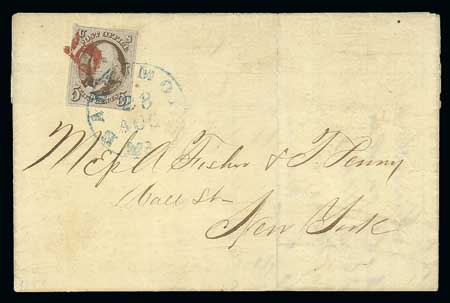 POST OFFICE
5 5
28
AUG
A Fisher & T Penny
Wall St
New York